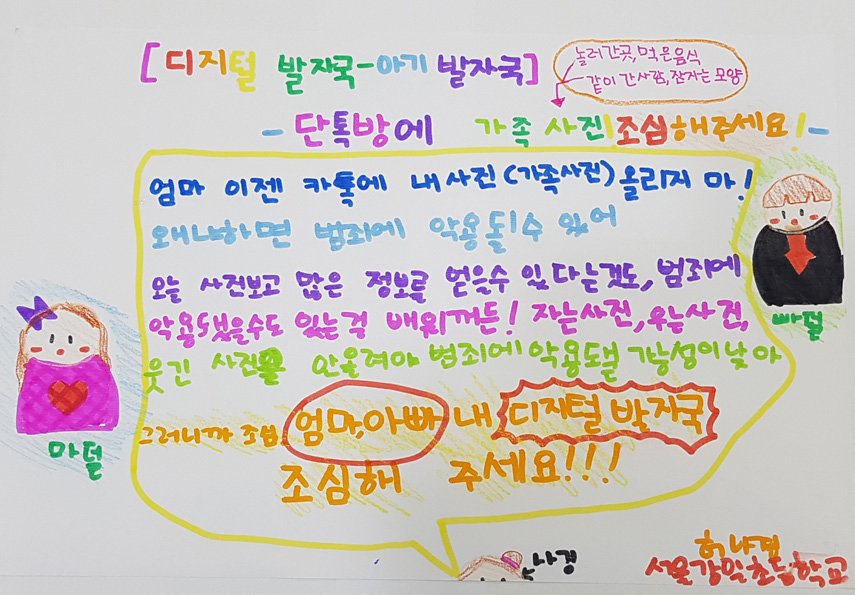 [디지털 발자국-아기 발자국]
놀러간곳, 먹은음식
같이 간사람, 잠자는 모양
- 단톡방에 가족 사진 조심해주세요! -
엄마 이젠 카톡에 내사진(가족사진) 올리지 마!
왜냐하면 범죄에 악용될 수 있어
오늘 사진보고 많은 정보를 얻을수 있다는것도, 범죄에
악용됐을수도 있는걸 배워꺼든! 자는사진, 우는사진,
웃긴 사진을 안올려야 범죄에 악용도될 가능성이낮아
그러니까 조심! 엄마,아빠 내 디지털 발자국
조심해 주세요!!!
빠덜
마덜
나경
허나경
서울강일초등학교